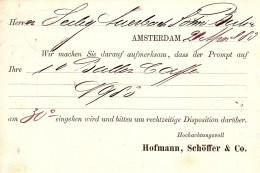 Herren
AMSTERDAM
Wir machen Sie darauf aufmerksam, dass der Prompt auf
Ihre 10 Ballen Caffe
am 30º eingehen wird und bitten um rechtzeitige Disposition darüber.
Hochachtungsvoll
Hofmann, Schöffer & Co.